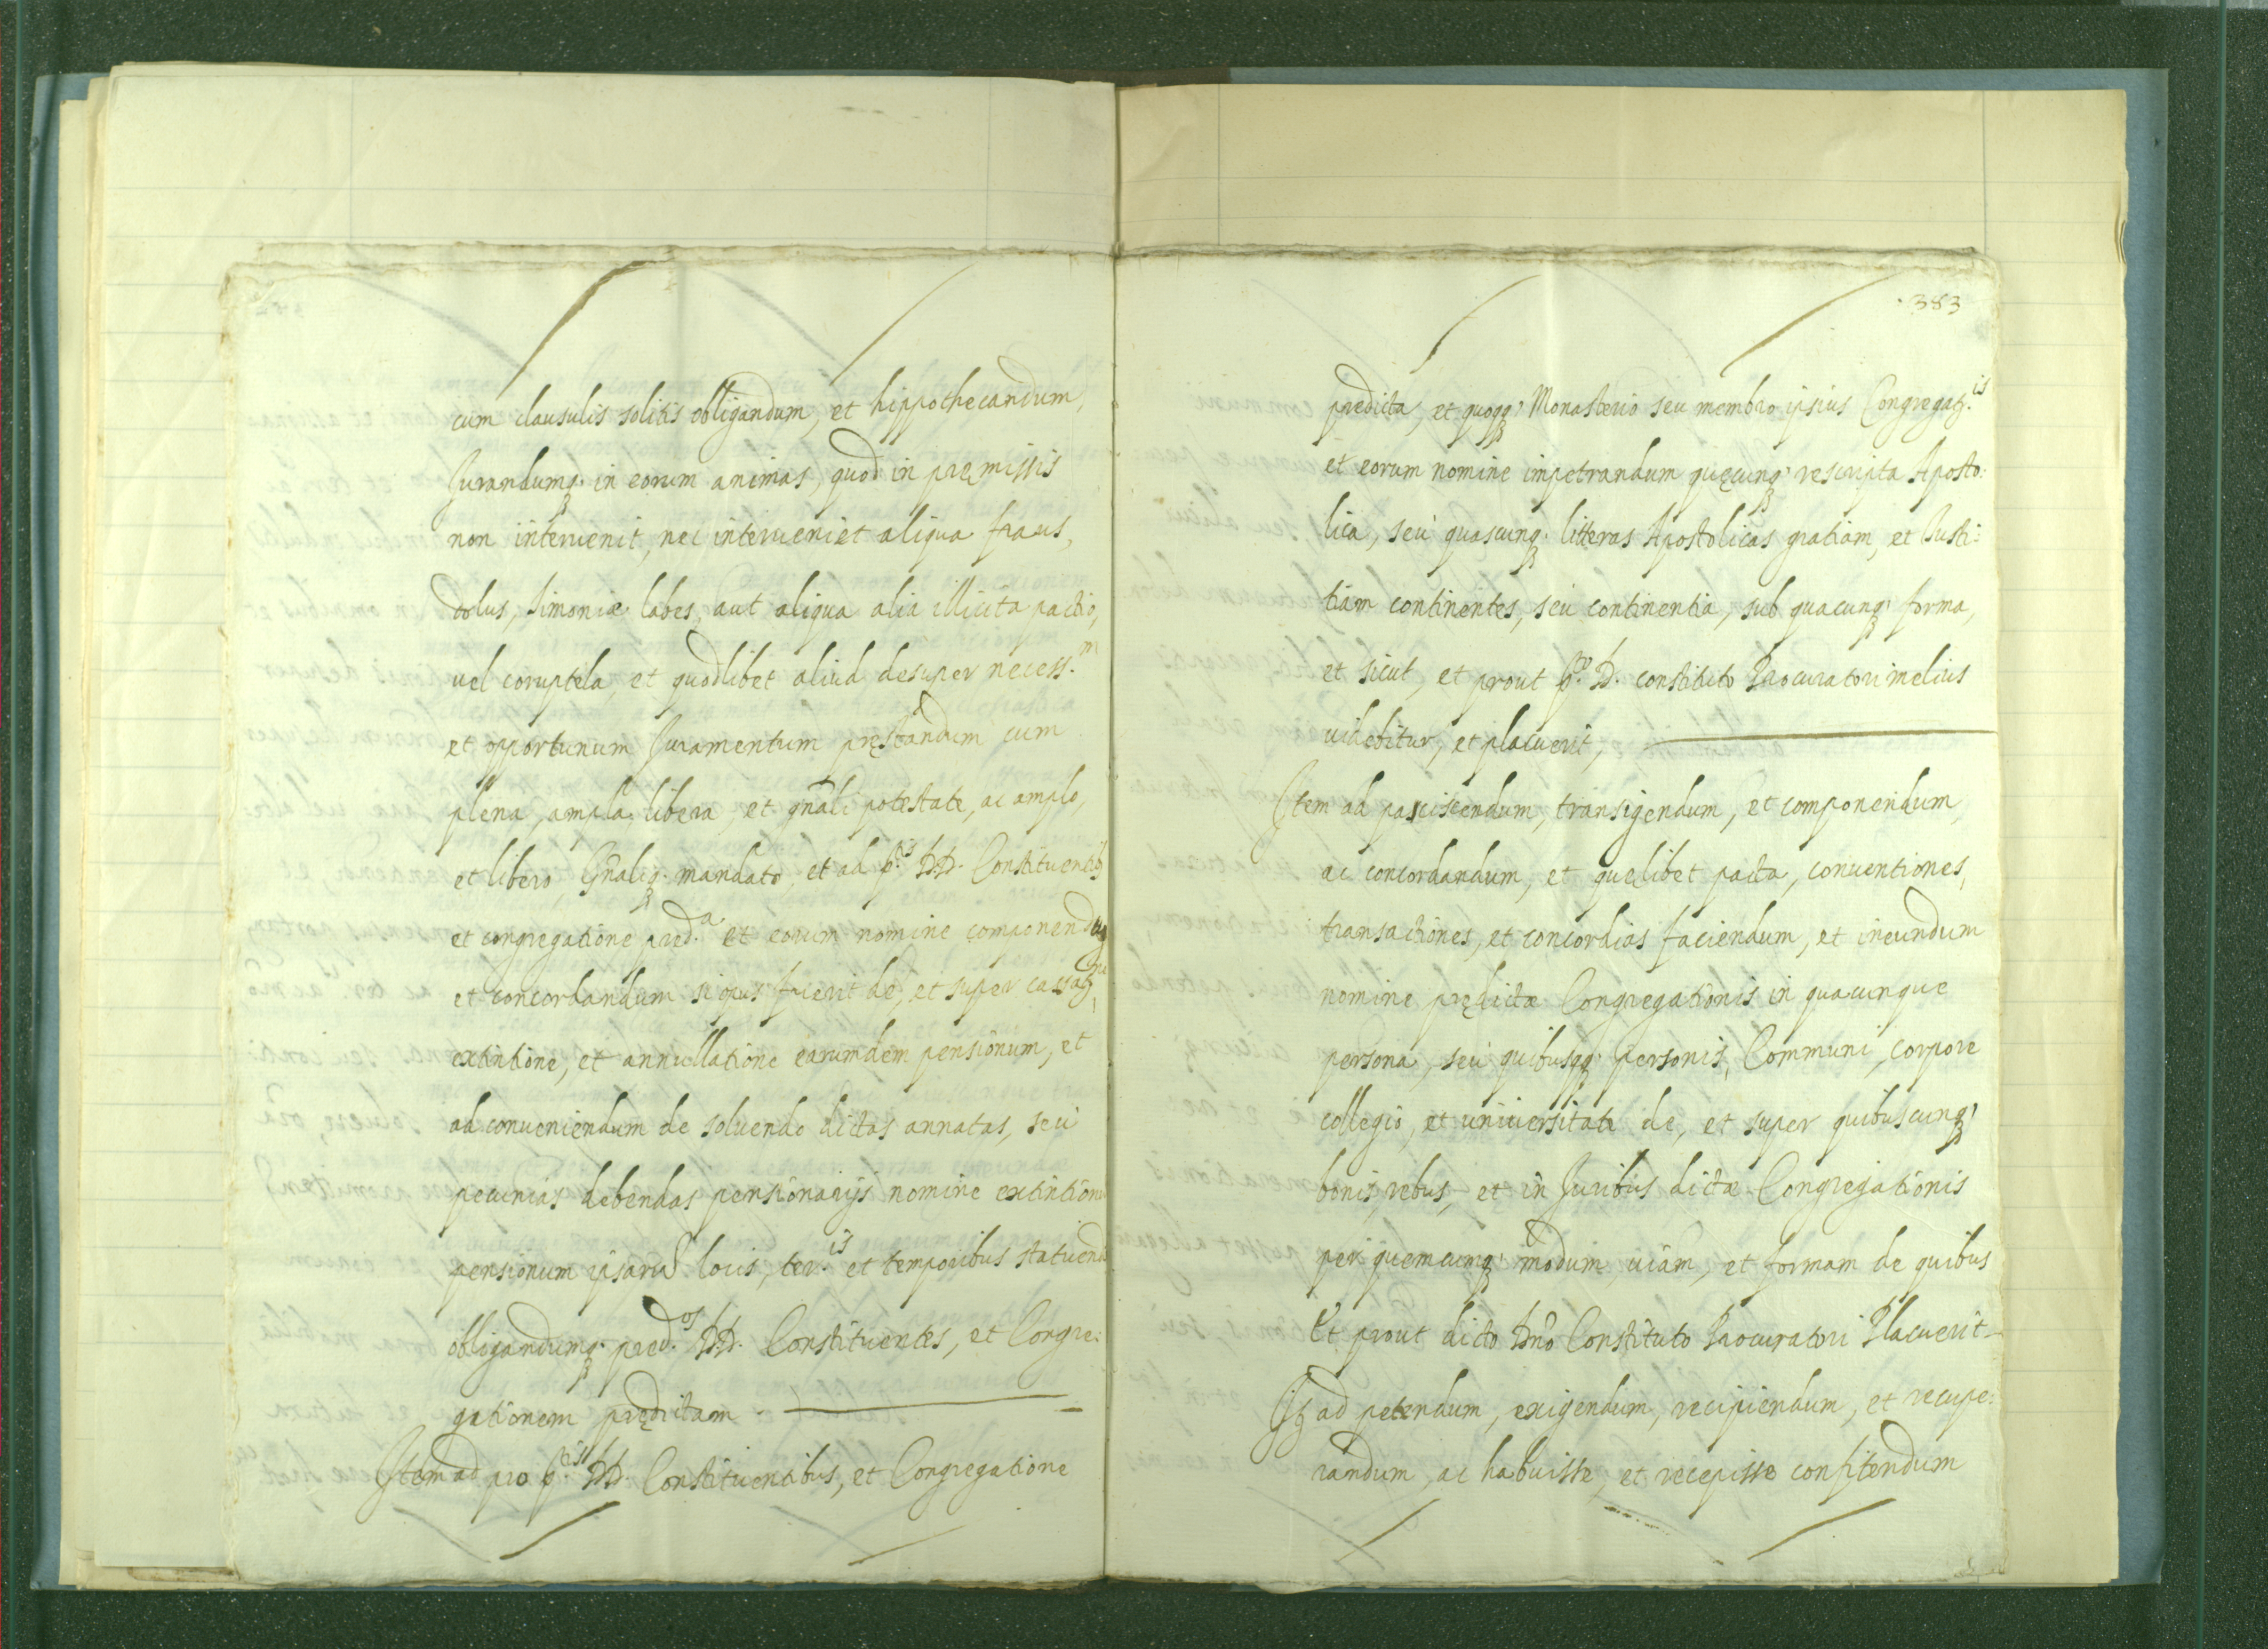 cum clausulis solitis obligandum, et hippothecandum,
Jurandumq. in eorum animas, quod in pręmissis
non interuenit, nec interueniet aliqua fraus,
dolus, simoniæ labes, aut aliqua alia illicita pactio,
uel coruptela, et quodlibet aliud desuper necess.m
et opportunum Juramentum pręstandum cum
plena, ampla, libera, et gñali potestate, ac amplo,
et libero Gñaliq. mandato, et ad p.tis DD. Constituentib
et congregatione pred.a et eorum nomine componendum
et concordandum si opus fuerit de, et super cassat
extintione, et annullatione earumdem pensionum, et
ad conueniendum de soluendo dictas annatas, seu
pecunias debendas pensionarijs nomine extintion
pensionum ipsarū locis, ter.is et temporibus statuend
obligandumq. pred.os DD. Constituentes, et Congre:
gationem prędictam
Item ad pro p.tis DD. Constituentibus, et Congregatione
383
predicta, et quoqq. Monasterio seu membro ipsius Congregat.is
et eorum nomine impetrandum quęcunq. rescripta Aposto:
lica, seu quascunq. litteras Apostolicas gratiam, et Justi:
tiam continentes, seu continentia, sub quacunq. forma,
et sicut, et prout p.to D. constituto Procuratori melius
uidebitur, et placuerit,
Item ad paciscendum, transigendum, et componendum,
ac concordandum, et quęlibet pacta, conuentiones,
transactiones, et concordias faciendum, et ineundum
nomine prędictæ Congregationis in quacunque
persona, seu quibusqq. personis, Communi, corpore
collegio, et uniuersitate de, et super quibuscunq.
bonis, rebus, et in Juribus dictæ Congregationis
per quemcunq. modum, uiam, et formam de quibus
Et prout dicto Dño Constituto Procuratori Placuerit
It ad petendum, exigendum, recipiendum, et recupe:
randum, ac habuisse, et recepisse confitendum